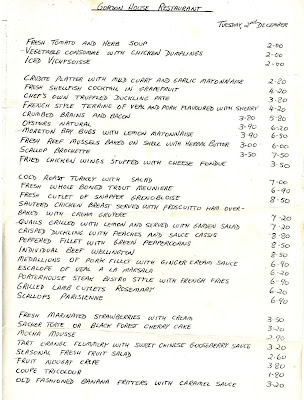 GORDON HOUSE RESTAURANT
TUESDAY, 2nd DECEMBER
FRESH TOMATO AND HERB SOUP 2-00
VEGETABLE CONSOMME WITH CHICKEN DUMPLINGS 2-00
ICED VICHYSSOISE 2-00
CRUDITE PLATTER WITH MILD CURRY AND GARLIC MAYONNAISE 2-80
FRESH SHELLFISH COCKTAIL IN GRAPEFRUIT 4-20
CHEF'S OWN TRUFFLED DUCKLING PATE 3-80
FRENCH STYLE TERRINE OF VEAL AND PORK FLAVOURED WITH SHERRY 4-20
CRUMBED BRAINS AND BACON 3-80 5-80
OYSTERS NATURAL 3-90 6-20
MORETON BAY BUGS WITH LEMON MAYONNAISE 3-90 6-50
FRESH REEF MUSSELS BAKED ON SHELL WITH HERBAL BUTTER 3-00 6-00
SCALLOP BROCHETTE 3-50 7-50
FRIED CHICKEN WINGS STUFFED WITH CHEESE FONDUE 3-50
COLD ROAST TURKEY WITH SALAD 7-00
FRESH WHOLE BONED TROUT MEUNIERE 6-90
FRESH CUTLET OF SNAPPER GRENOBLOISE 8-50
SAUTEED CHICKEN BREAST SERVED WITH PROSCIUTTO HAM OVER-
BAKED WITH CREMA GRUYERE 7-20
QUAILS GRILLED WITH LEMON AND SERVED WITH GARDEN SALAD 7-20
CRISPED DUCKLING WITH PEACHES AND SAUCE CASSIS 8-80
PEPPERED FILLET WITH GREEN PEPPERCORNS 8-50
INDIVIDUAL BEEF WELLINGTON 8-50
MEDALLIONS OF PORK FILLET WITH GINGER CREAM SAUCE 6-90
ESCALOPE OF VEAL A LA MARSALA 6-20
PORTERHOUSE STEAK BISTRO STYLE WITH FRENCH FRIES 6-90
GRILLED LAMB CUTLETS ROSEMARY 6-20
SCALLOPS PARISIENNE 6-90
FRESH MARINATED STRAWBERRIES WITH CREAM 3-50
SACHER TORTE OR BLACK FOREST CHERRY CAKE 3-20
MOCHA MOUSSE 2-90
TART ORANGE FLUMMERY WITH SWEET CHINESE GOOSEBERRY SAUCE 3-20
SEASONAL FRESH FRUIT SALAD 2-60
FRUIT NOUGAT CREPE 3-80
COUPE TRICOLOUR 1-80
OLD FASHIONED BANANA FRITTERS WITH CARAMEL SAUCE 3-20